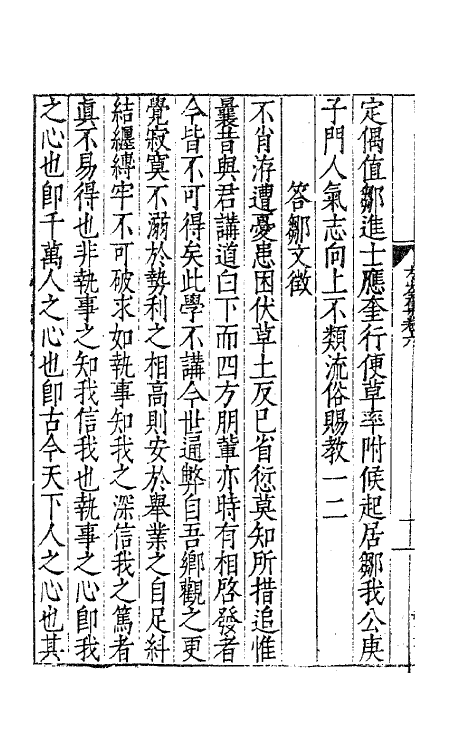 定偶值鄒進士應奎行便草率附候起居鄒我公庚
子門人氣志向上不類流俗賜教一二
答鄒文徵
不肖洊遭憂患困伏草土反已省愆莫知所措追惟
曩昔與君講道白下而四方朋軰亦時有相啓發者
今皆不可得矣此學不講今世通弊自吾鄉觀之更
覺寂寞不溺於勢利之相高則安於舉業之自足糾
結纒縛牢不可破求如執事知我之深信我之篤者
眞不易得也非執事之知我信我也執事之心卽我
之心也卽千萬人之心也卽古今天下人之心也其